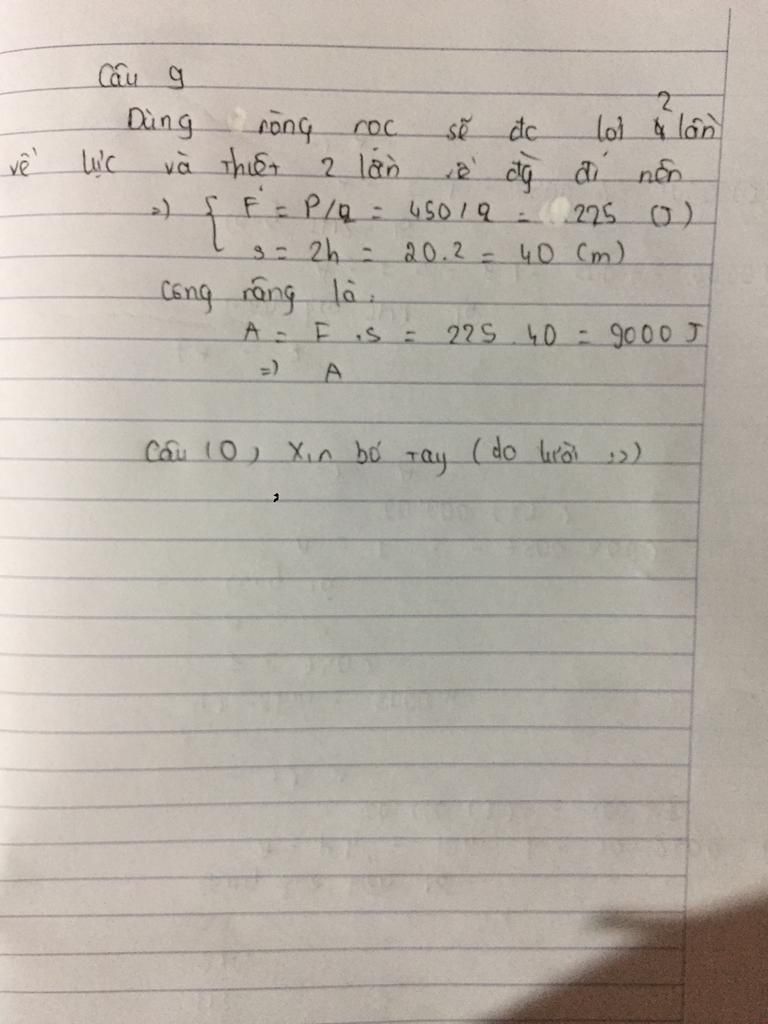 Câu 9
Dùng ròng rọc sẽ đc lợi 2 lần
về lực và thiệt 2 lần về đg đi nên
=) { F = P/2 = 450/2 = 225 (J)
s = 2h = 20.2 = 40 (m)
Công rằng là:
A = F.s = 225.40 = 9000 J
=) A
Câu 10, Xin bó tay (do lười :))